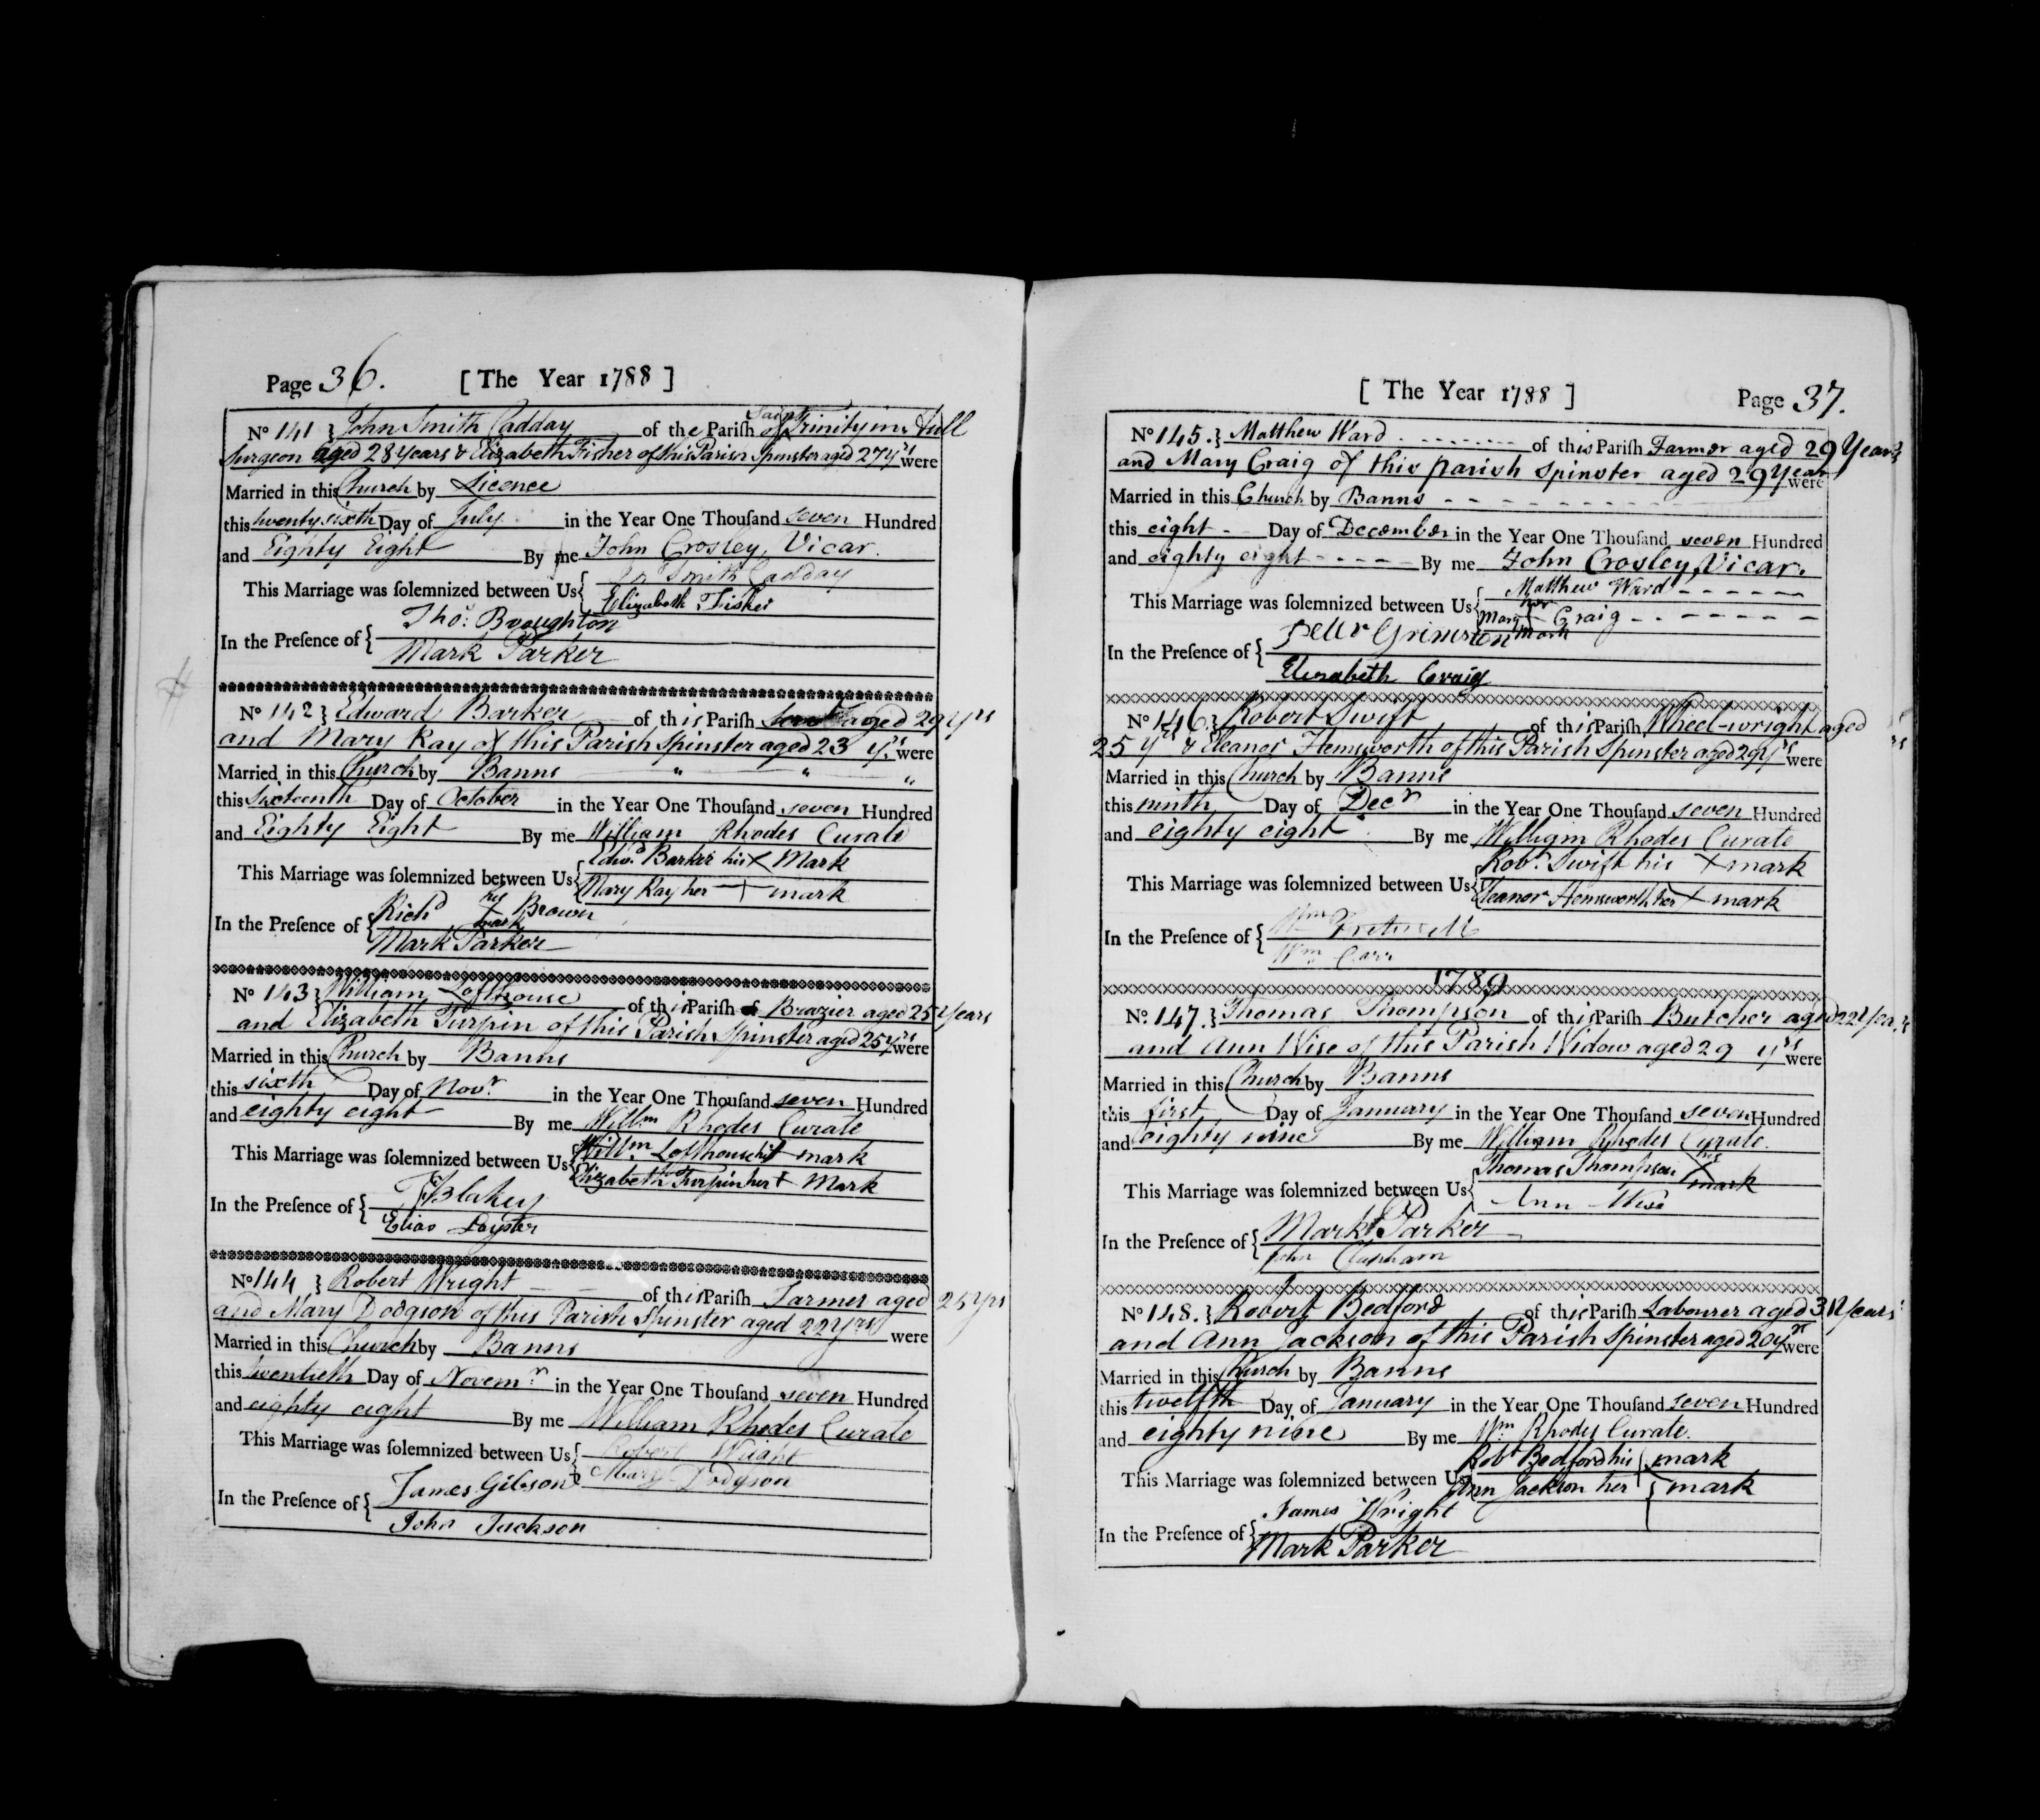 Page 36. [ The Year 1788 ]
No 141 } John Smith Cadday of the Parish of Saint Trinity in Hull
Surgeon aged 28 years & Elizabeth Fisher of this Parish Spinster aged 27 yrs were
Married in this Church by Licence
this twenty sixth Day of July in the Year One Thousand seven Hundred
and Eighty Eight By me John Crosley, Vicar.
This Marriage was solemnized between Us { Jn Smith Cadday
Elizabeth Fisher
In the Presence of { Thos: Broughton
Mark Parker
No 142 } Edward Barker of this Parish aged 29 yrs
and Mary Kay of this Parish Spinster aged 23 yrs were
Married in this Church by Banns
this Sixteenth Day of October in the Year One Thousand seven Hundred
and Eighty Eight By me William Rhodes Curate
This Marriage was solemnized between Us { Edwd. Barker his X Mark
Mary Kay her + mark
In the Presence of { Richd his X mark Brown
Mark Parker
No 143 } William Lofthouse of this Parish Brazier aged 25 years
and Elizabeth Turpin of this Parish Spinster aged 25 yrs were
Married in this Church by Banns
this sixth Day of Novr. in the Year One Thousand seven Hundred
and eighty eight By me Willm Rhodes Curate
This Marriage was solemnized between Us { Willm. Lofthouse his + mark
Elizabeth Turpin her + Mark
In the Presence of { Blakey
Elias
No 144 } Robert Wright of this Parish Farmer aged 25 yrs
and Mary Dodgson of this Parish Spinster aged 22 yrs were
Married in this Church by Banns
this twentieth Day of Novemr. in the Year One Thousand seven Hundred
and eighty eight By me William Rhodes Curate
This Marriage was solemnized between Us { Robert Wright
Mary Dodgson
In the Presence of { James Gibson
John Jackson
[ The Year 1788 ] Page 37.
No 145. } Matthew Ward of this Parish Farmer aged 29 Years
and Mary Craig of this parish spinster aged 29 Year were
Married in this Church by Banns
this eight Day of December in the Year One Thousand seven Hundred
and eighty eight By me John Crosley, Vicar.
This Marriage was solemnized between Us { Matthew Ward
Mary her mark Craig
In the Presence of { Peter Grimston
Elizabeth Craig
No 146 } Robert Swift of this Parish Wheel-wright aged
25 yrs & Eleanor Hemsworth of this Parish Spinster aged 29 yrs were
Married in this Church by Banns
this ninth Day of Decr in the Year One Thousand seven Hundred
and eighty eight By me William Rhodes Curate
This Marriage was solemnized between Us { Robt. Swift his X mark
Eleanor Hemsworth her X mark
In the Presence of { Wm Fretwell
Wm Carr
1789
No. 147. } Thomas Thompson of this Parish Butcher aged 22 Years
and Ann Wise of this Parish Widow aged 29 yrs were
Married in this Church by Banns
this first Day of January in the Year One Thousand seven Hundred
and eighty nine By me William Rhodes Curate.
This Marriage was solemnized between Us { Thomas Thompson his X mark
Ann Wise
In the Presence of { Mark Parker
John Clapham
No 148. } Robert Bedford of this Parish Labourer aged 31 Years
and Ann Jackson of this Parish Spinster aged 20 yrs were
Married in this Church by Banns
this twelfth Day of January in the Year One Thousand seven Hundred
and eighty nine By me Wm Rhodes Curate.
This Marriage was solemnized between Us { Robt Bedford his mark
Ann Jackson her mark
In the Presence of { James Wright
Mark Parker